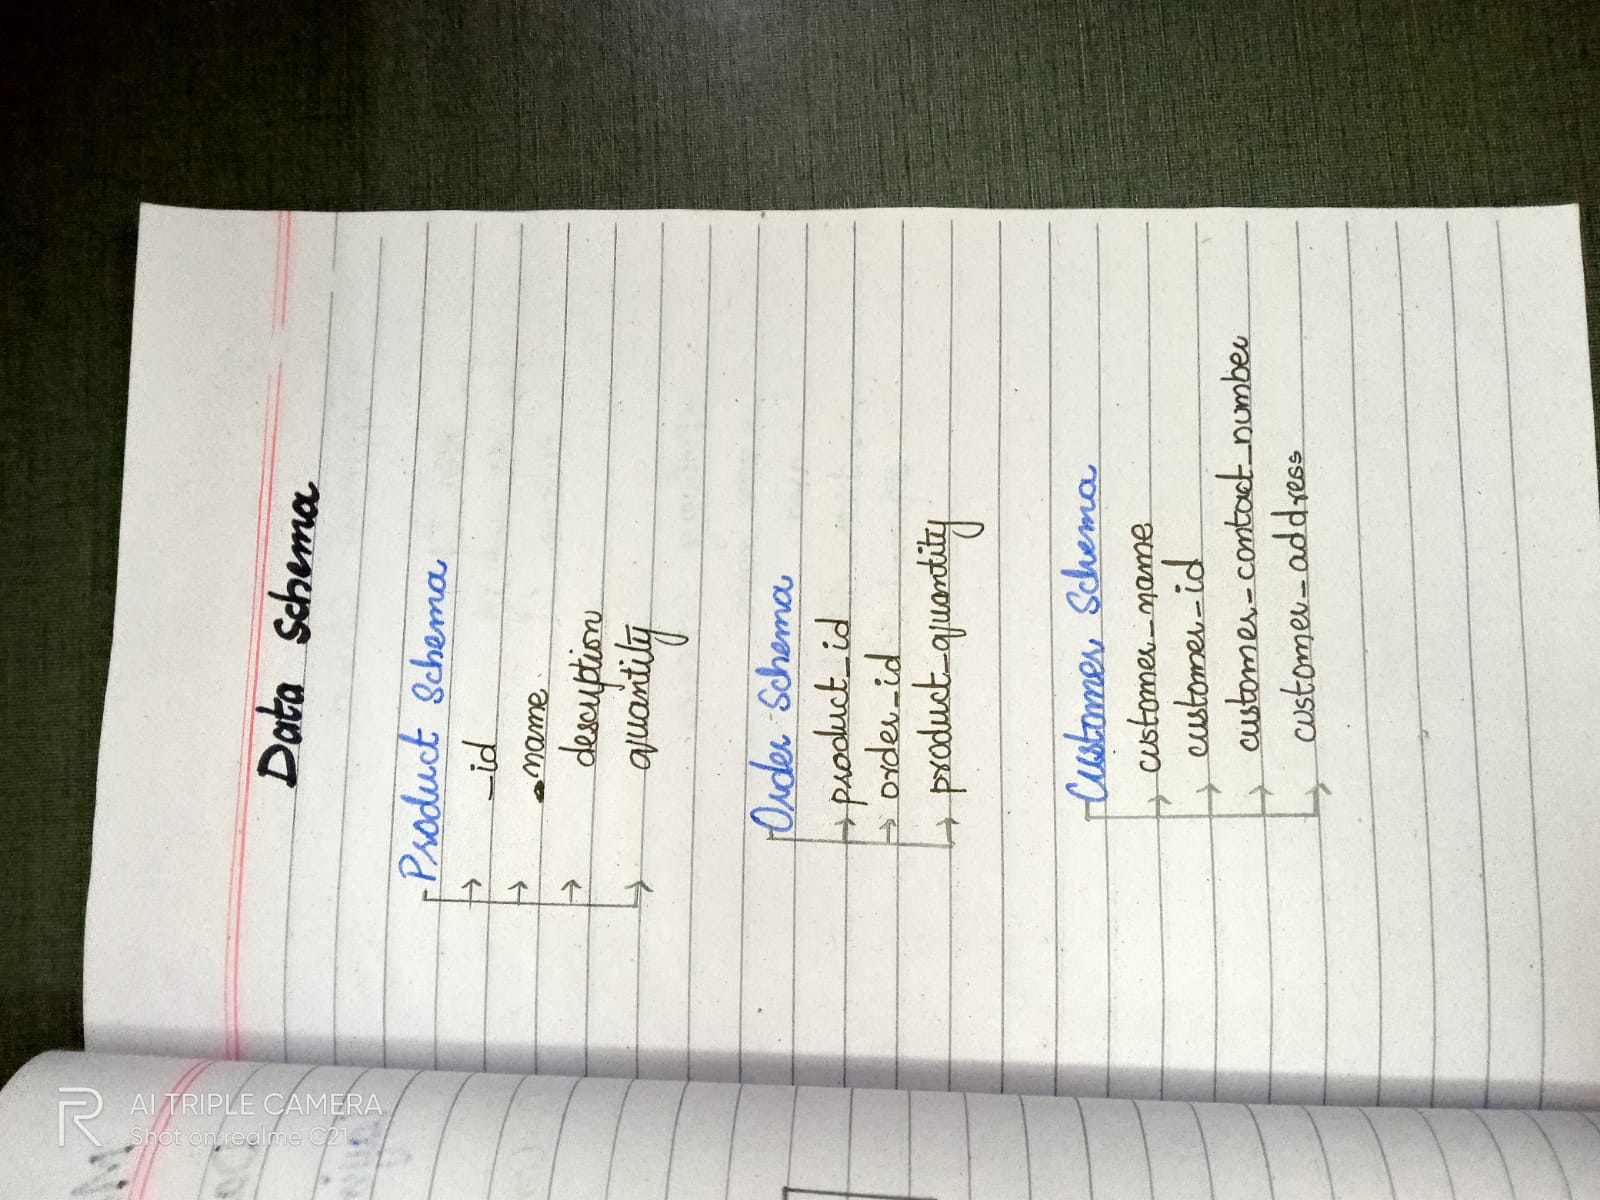 Data Schema
Product Schema
_id
name
description
quantity
Order Schema
product_id
order_id
product_quantity
Customer Schema
customer_name
customer_id
customer_contact_number
customer_address
AI TRIPLE CAMERA
Shot on realme C21